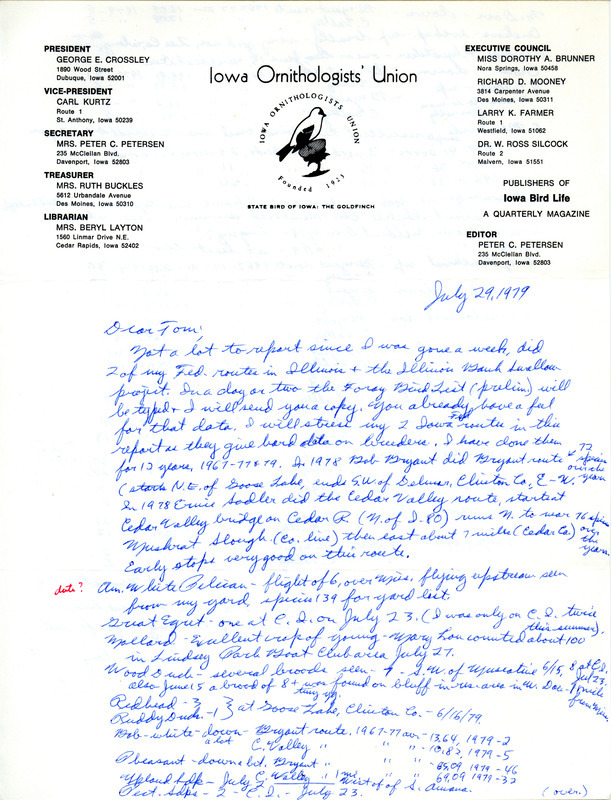 PRESIDENT
GEORGE E. CROSSLEY
1890 Wood Street
Dubuque, Iowa 52001
VICE-PRESIDENT
CARL KURTZ
Route 1
St. Anthony, Iowa 50239
SECRETARY
MRS. PETER C. PETERSEN
235 McClellan Blvd.
Davenport, Iowa 52803
TREASURER
MRS. RUTH BUCKLES
5612 Urbandale Avenue
Des Moines, Iowa 50310
LIBRARIAN
MRS. BERYL LAYTON
1560 Linmar Drive N.E.
Cedar Rapids, Iowa 52402
Iowa Ornithologists' Union
IOWA ORNITHOLOGISTS UNION
Founded 1923
STATE BIRD OF IOWA: THE GOLDFINCH
EXECUTIVE COUNCIL
MISS DOROTHY A. BRUNNER
Nora Springs, Iowa 50458
RICHARD D. MOONEY
3814 Carpenter Avenue
Des Moines, Iowa 50311
LARRY K. FARMER
Route 1
Westfield, Iowa 51062
DR. W. ROSS SILCOCK
Route 2
Malvern, Iowa 51551
PUBLISHERS OF
Iowa Bird Life
A QUARTERLY MAGAZINE
EDITOR
PETER C. PETERSEN
235 McClellan Blvd.
Davenport, Iowa 52803
July 29, 1979
Dear Tom,
Not a lot to report since I was gone a week, did
2 of my Fed. routes in Illinois + the Illinois Bank Swallow
project. In a day or two the Foray Bird List (prelim) will
be typed + I will send you a copy. You already have a ful
for that data. I will stress my 2 Iowa Fed routes in this
report as they give hard data on breeders. I have done them
for 12 years, 1967-77 & 79. In 1978 Bob Bryant did Bryant route
(starts N.E. of Goose Lake, ends S.W. of Delmar, Clinton Co, E-W. 72 species over the years
In 1978 Ernie Sadler did the Cedar Valley route, starts at
Cedar Valley bridge on Cedar R. (N. of I. 80) runs N. to near 76 species
Muskrat Slough (Co. line) then east about 7 miles (Cedar Co.) over the years.
Early stops very good on this route.
date? Am. White Pelican - flight of 6, over Miss. flying upstream seen
from my yard, species 139 for yard list.
Great Egret - one at C. I. on July 23. (I was only on C. I. twice this summer).
Mallard - Excellent crop of young - Mary Lou counted about 100
in Lindsey Park Boat Club area July 27.
Wood Duck - several broods seen - 9 - S.W. of Muscatine 6/15, 8 at C.I. Jul 23.
also June 15 a brood of 8+ tiny yg. was found on bluff in res. area in W. Dav. - 1 mile from Miss.
Redhead - 3 } at Goose Lake, Clinton Co. - 6/16/79
Ruddy Duck - 1
Bob-white - down a lot - Bryant route. 1967-77 av - 13.64, 1979 - 2
C. Valley " " " - 10.82, 1979 - 5
Pheasant - down a bit. Bryant " " - 65.09, 1979 - 46
C. Valley " " 69.09, 1979 - 32
Upland Sdp. - July 1 mi. west of S. Amana.
Pect. Sdps - 2 - C. I. - July 23.
(over.)